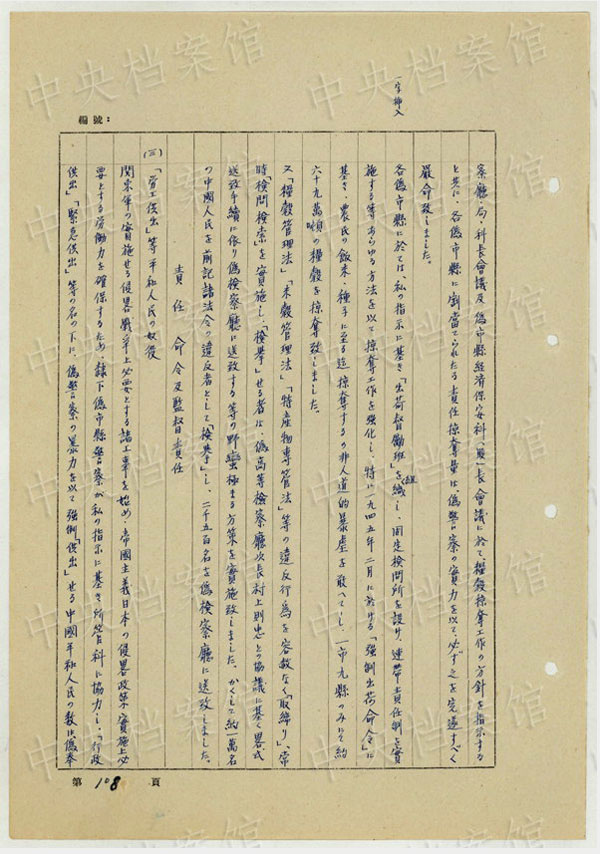 一字挿入
編號：
察廳・局・科長會議及偽市縣經濟保安科、股長會議に於て、糧穀掠奪工作の方針を指示する
と共に、各偽市縣に割當てられたる責任掠奪量は、偽警察の實力を以て、必ず之を完遂すべく
嚴命致しました。
各偽市縣に於ては、私の指示に基き「出荷督勵班」を組織し、固定檢問所を設け、連帶責任制を實
施する等あらゆる方法を以て掠奪工作を強化し、特に一九四五年二月に於ける「強制出荷命令」に
基き、農民の飯米、種子に至る迄掠奪するの非人道的暴虐を敢へてし、一市九縣のみにて約
六十九萬噸の糧穀を掠奪致しました。
又「糧穀管理法」「米穀管理法」「特産物專管法」等の違反行為を容赦なく「取締り」、常
時「檢問檢索」を實施し、「檢擧」せる者は、偽高等檢察廳次長村上則忠との協議に基く畧式
送致手續に依り偽檢察廳に送致する等の野蛮極まる方策を實施致しました。かくして約一萬名
の中國人民を前記諸法令の違反者として「檢擧」し、二千五百名を偽檢察廳に送致しました。
責任 命令及監督責任
(三) 「労工供出」等平和人民の奴役
関東軍の實施せる侵畧戰爭上必要とする諸工事を始め、帝國主義日本の侵畧政策實施上必
要とする労働力を確保するため、隷下偽市縣警察が私の指示に基き所管科に協力し、「行政
供出」「緊急供出」等の名の下に、偽警察の暴力を以て強制「供出」せる中國平和人民の数は、偽奉
第 108 頁
中央档案馆